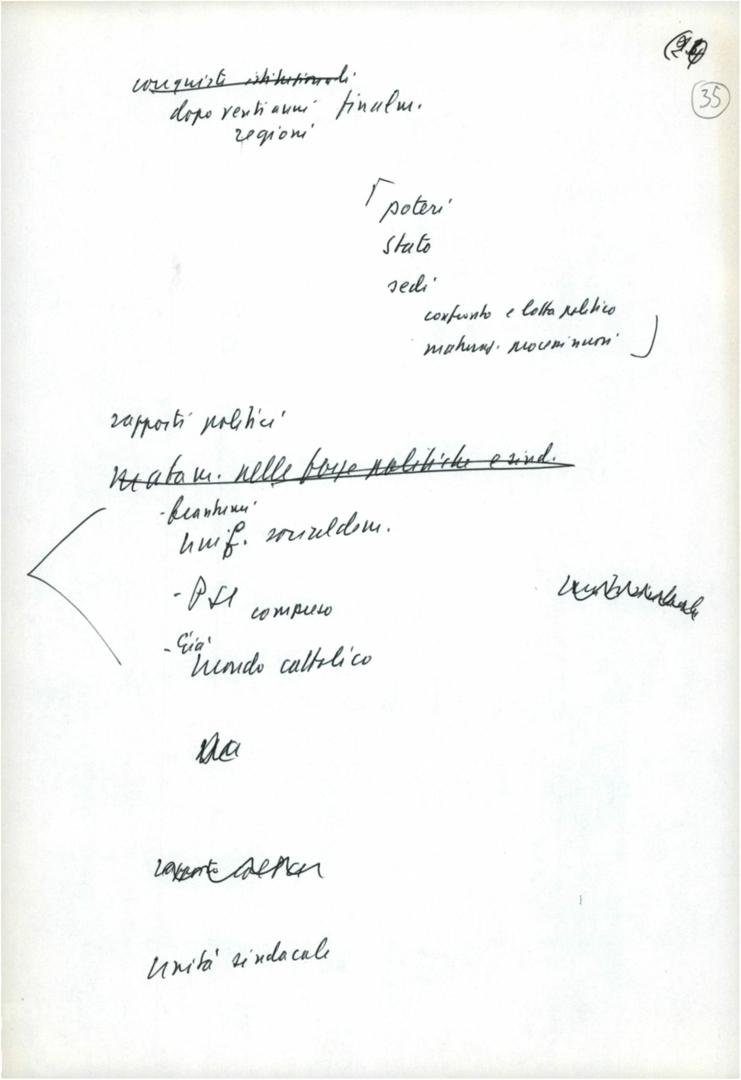 35
conquiste istituzionali
dopo venti anni finalm.
regioni
poteri
stato
sedi
confronto e lotta politico
maturaz. processi nuovi
rapporti politici
nelle forze politiche e sind.
unif. socialdem.
- PSI compreso
- Già
mondo cattolico
rapporto
unità sindacale